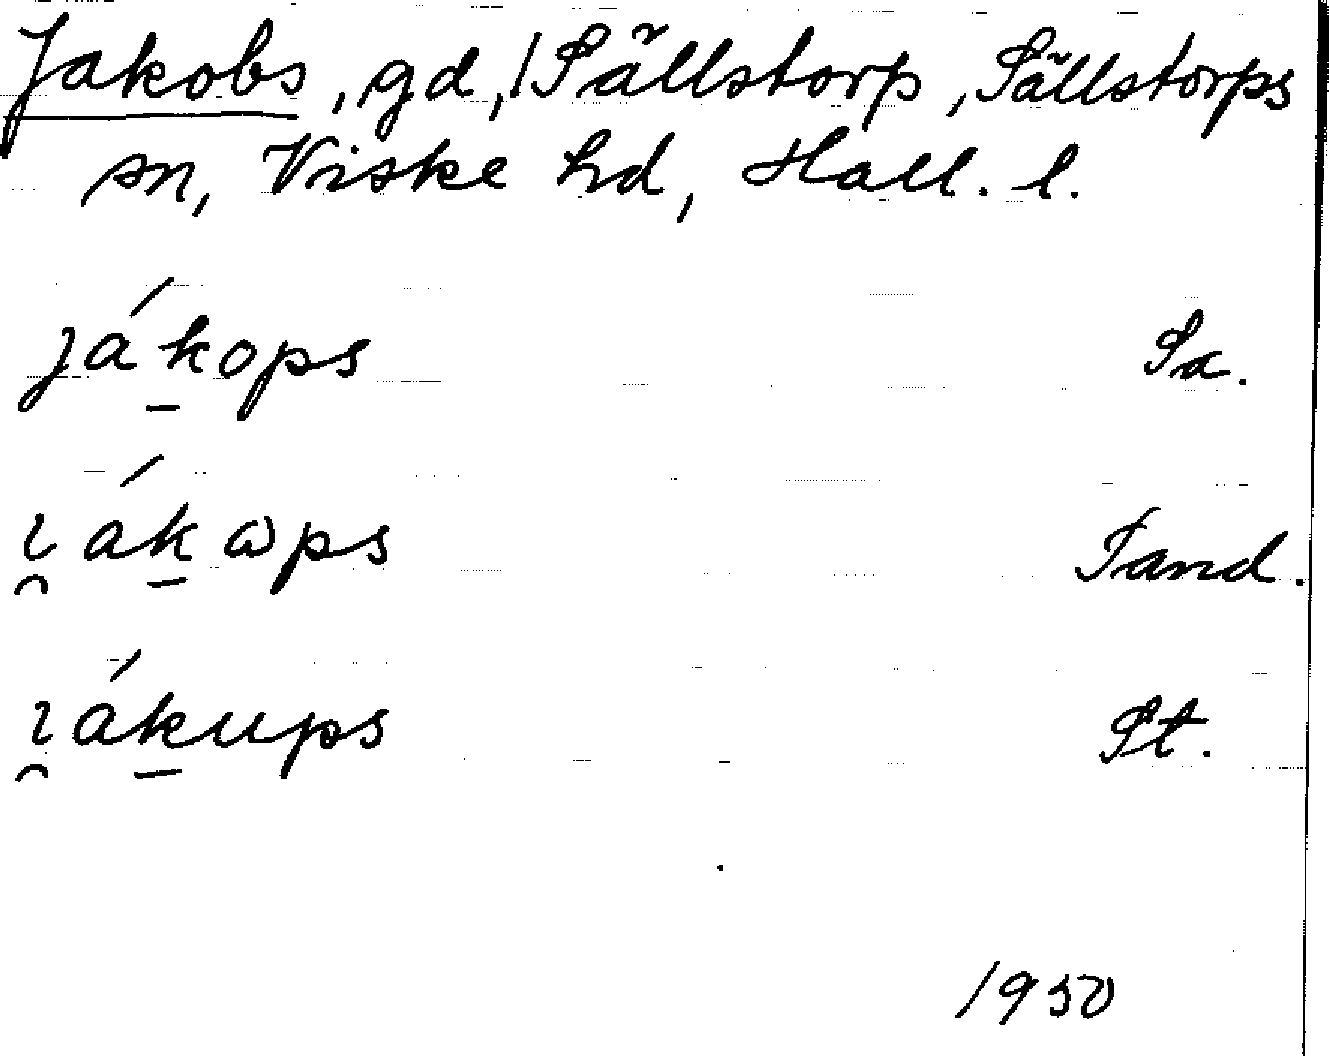 Jakobs, gd, 1 Sällstorp, Sällstorps
sn, Viske hd, Hall. l.
jákops Sa.
ı̯ákωps Tand.
ı̯ákups St.
1950